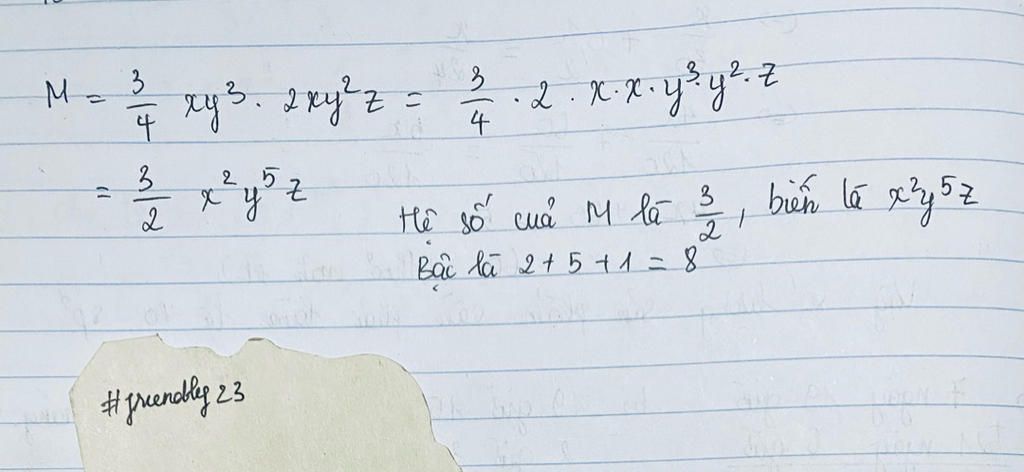 M = 3/4 xy³ . 2xy²z = 3/4 . 2 . x . x . y³ . y² . z
= 3/2 x²y⁵z
Hệ số cuả M là 3/2, biến là x²y⁵z
Bậc là 2 + 5 + 1 = 8